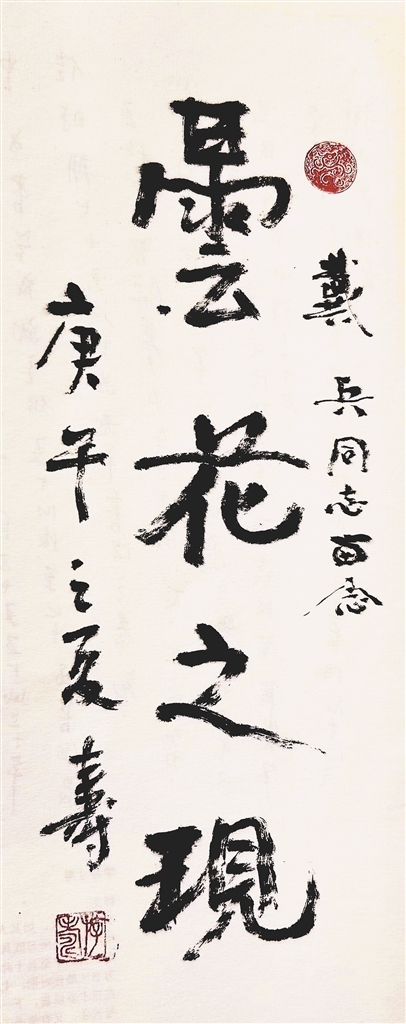 戴兵同志留念
曇花之現
庚午之夏壽